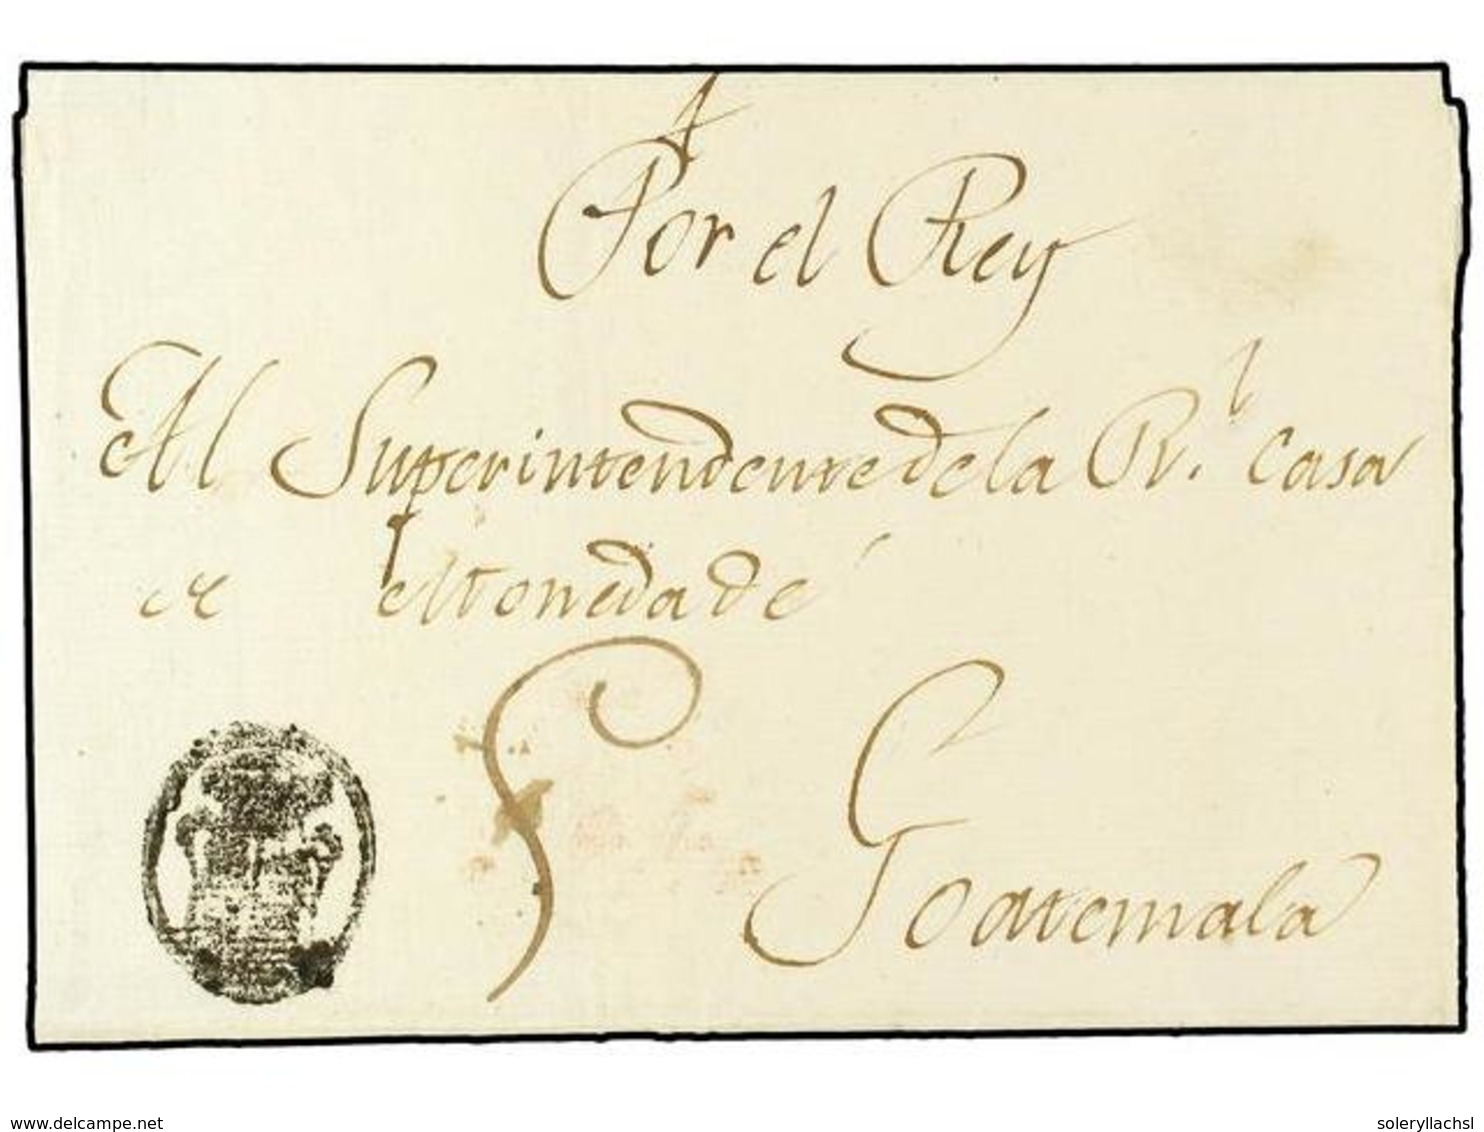 Por el Rey
Al Superintendente de la Rl. Casa
de Moneda de
Goatemala
www.delcampe.net
soleryllachsl